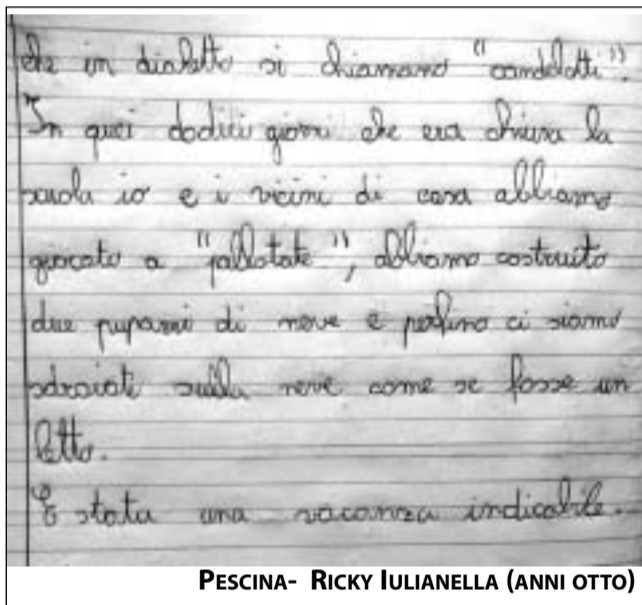 che in dialetto si chiamano "candelotti".
In quei dodici giorni che era chiusa la
scuola io e i vicini di casa abbiamo
giocato a "pallotate", abbiamo costruito
due pupazzi di neve e perfino ci siamo
sdraiati sulla neve come se fosse un
letto.
È stata una vacanza indicabile.
PESCINA- RICKY IULIANELLA (ANNI OTTO)